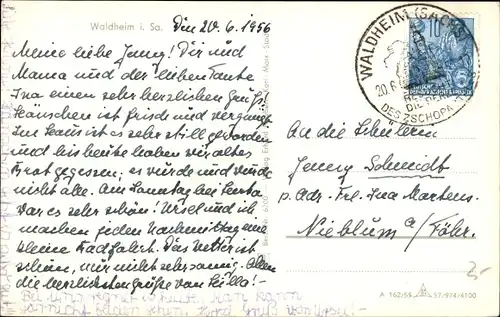 Waldheim i. Sa.
Den 20.6.1956
Meine liebe Jenny! Dir und
Mama und der lieben Tante
Ina einen sehr herzlichen Gruß.
Häuschen ist frisch und vergnügt.
Im Haus ist es sehr still geworden
und bis heute haben wir altes
Brot gegessen; es wurde und wurde
nicht alle. Am Sonntag bei Herta
war es sehr schön! Ursel und ich
machen jeden Nachmittag eine
kleine Radfahrt. Das Wetter ist
schön, nur nicht sehr sonnig. Allen
die herzlichsten Grüße von
WALDHEIM (SACHS)
20.6
DES ZSCHOPAU
10
An die Schülerin
Jenny Schmidt
p. Adr. Frl. Ina Martens.
Nieblum a/Föhr.
A 162/55 57/974/4100
2,-